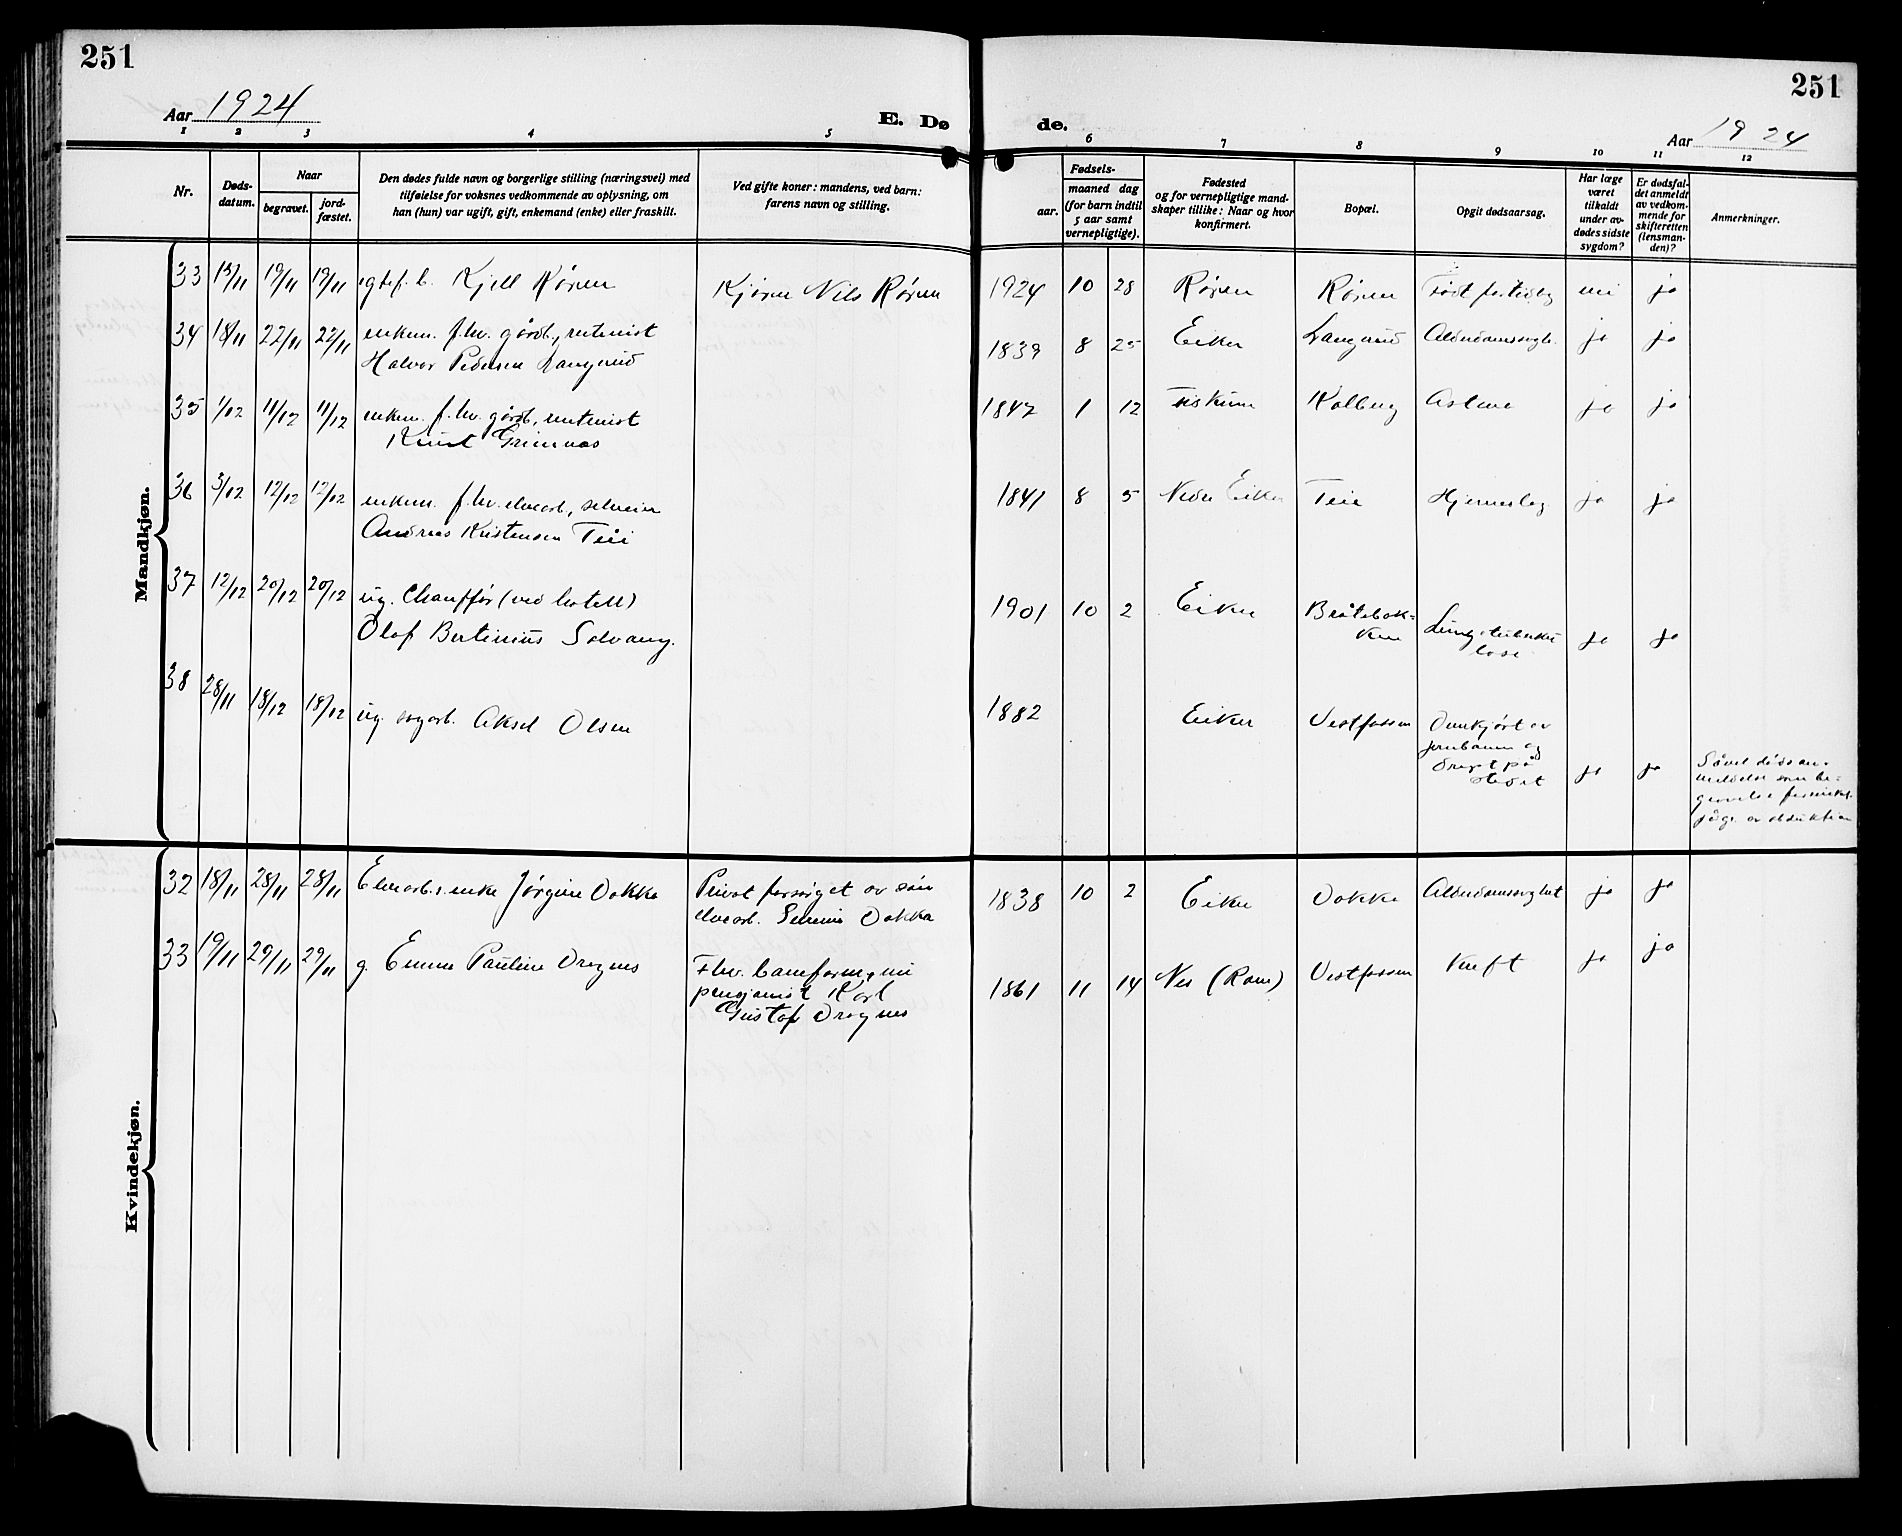 251
251
Aar 1924
E. Dø
de.
Aar 1924
1 2 3 4 5 6 7 8 9 10 11 12
Nr.
Døds-
datum.
Naar
begravet.
jord-
fæstet.
Den dødes fulde navn og borgerlige stilling (næringsvei) med
tilføielse for voksnes vedkommende av oplysning, om
han (hun) var ugift, gift, enkemand (enke) eller fraskilt.
Ved gifte koner: mandens, ved barn:
farens navn og stilling.
Fødsels-
aar.
maaned dag
(for barn indtil
5 aar samt
vernepligtige).
Fødested
og for vernepligtige mand-
skaper tillike: Naar og hvor
konfirmert.
Bopæl.
Opgit dødsaarsag.
Har læge
været
tilkaldt
under av-
dødes sidste
sygdom?
Er dødsfal-
det anmeldt
av vedkom-
mende for
skifteretten
(lensman-
den)?
Anmerkninger.
Mandkjøn.
33 13/11 19/11 19/11 Kjell Røren Nils Røren 1924 10 28 Røren Røren Født for tidlig nei ja
34 18/11 22/11 22/11 enkem. f.hv. gårdb., rentenist
Halvor Pedersen Langerud 1839 8 25 Eiker Langerud ja ja
35 1/12 11/12 11/12 enkem. f.hv. gårdb, rentenist
Knut Grimnæs 1847 1 12 Fiskum Kolberg Astma ja ja
36 3/12 12/12 12/12 enkem. f.hv. elvearb, selveier
Andreas Kristensen Teie 1841 8 5 Nedre Eiker Teie Hjerneslag ja ja
37 12/12 20/12 20/12 ug. Chauffør (ved hotell)
Olaf Bertinius Solvang. 1901 10 2 Eiker Bråtebak-
ken Lungetuberku
lose ja ja
38 28/11 18/12 18/12 ug. Aksel Olsen 1882 Eiker Vestfossen Overkjørt av
jernbanen og
drept på
stedet ja ja
Såvel dødsan-
meldelse som be-
gravelse
av obduktion
Kvindekjøn.
32 18/11 28/11 28/11 Elvearb.s enke Jørgine Dokka Privat forsørget av søn
elvearb. Dokka 1838 10 2 Eiker Dokka Alderdomssvakhet ja ja
33 19/11 29/11 29/11 g. Emma Pauline Dragnes F.hv.
pensjonist Karl
Gustaf Dragnes 1861 11 14 Nes (Rom) Vestfossen Kreft ja ja